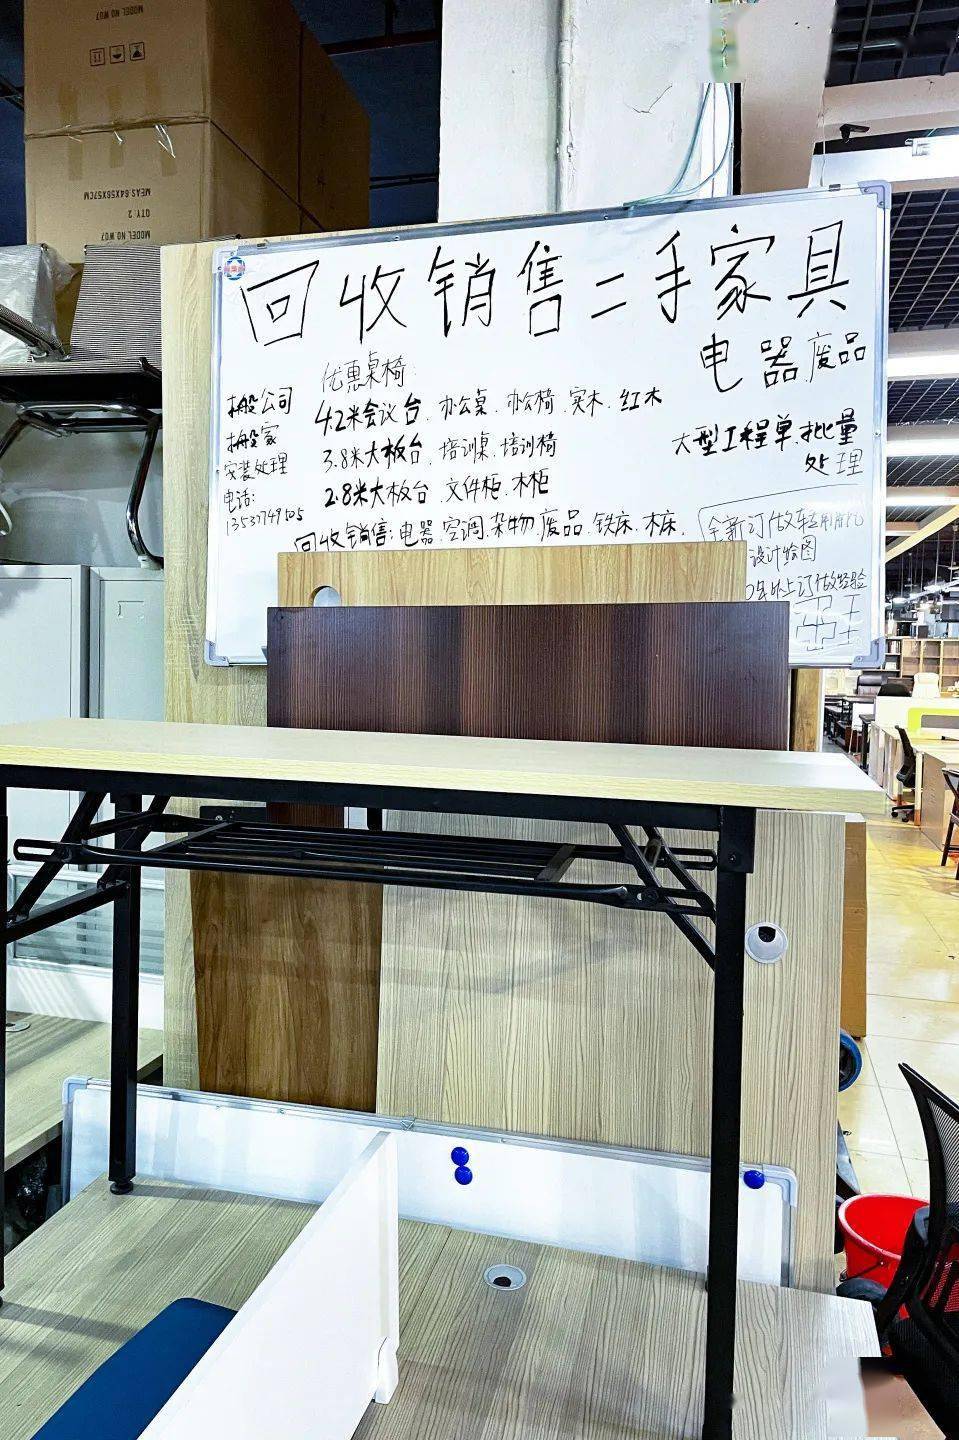 MODEL NO W07
MEAS 64X58X57CM
QTY 2
MODEL NO W07
回收销售二手家具
电器.废品
优惠桌椅:
搬公司
4.2米会议台.办公桌.办公椅.实木.红木
搬家
3.8米大板台.培训桌.培训椅
大型工程单.批量
处理
安装处理
2.8米大板台.文件柜.木柜
电话:
回收销售:电器.空调.杂物.废品.铁床.木床.
全新订做
设计绘图
年以上订做经验